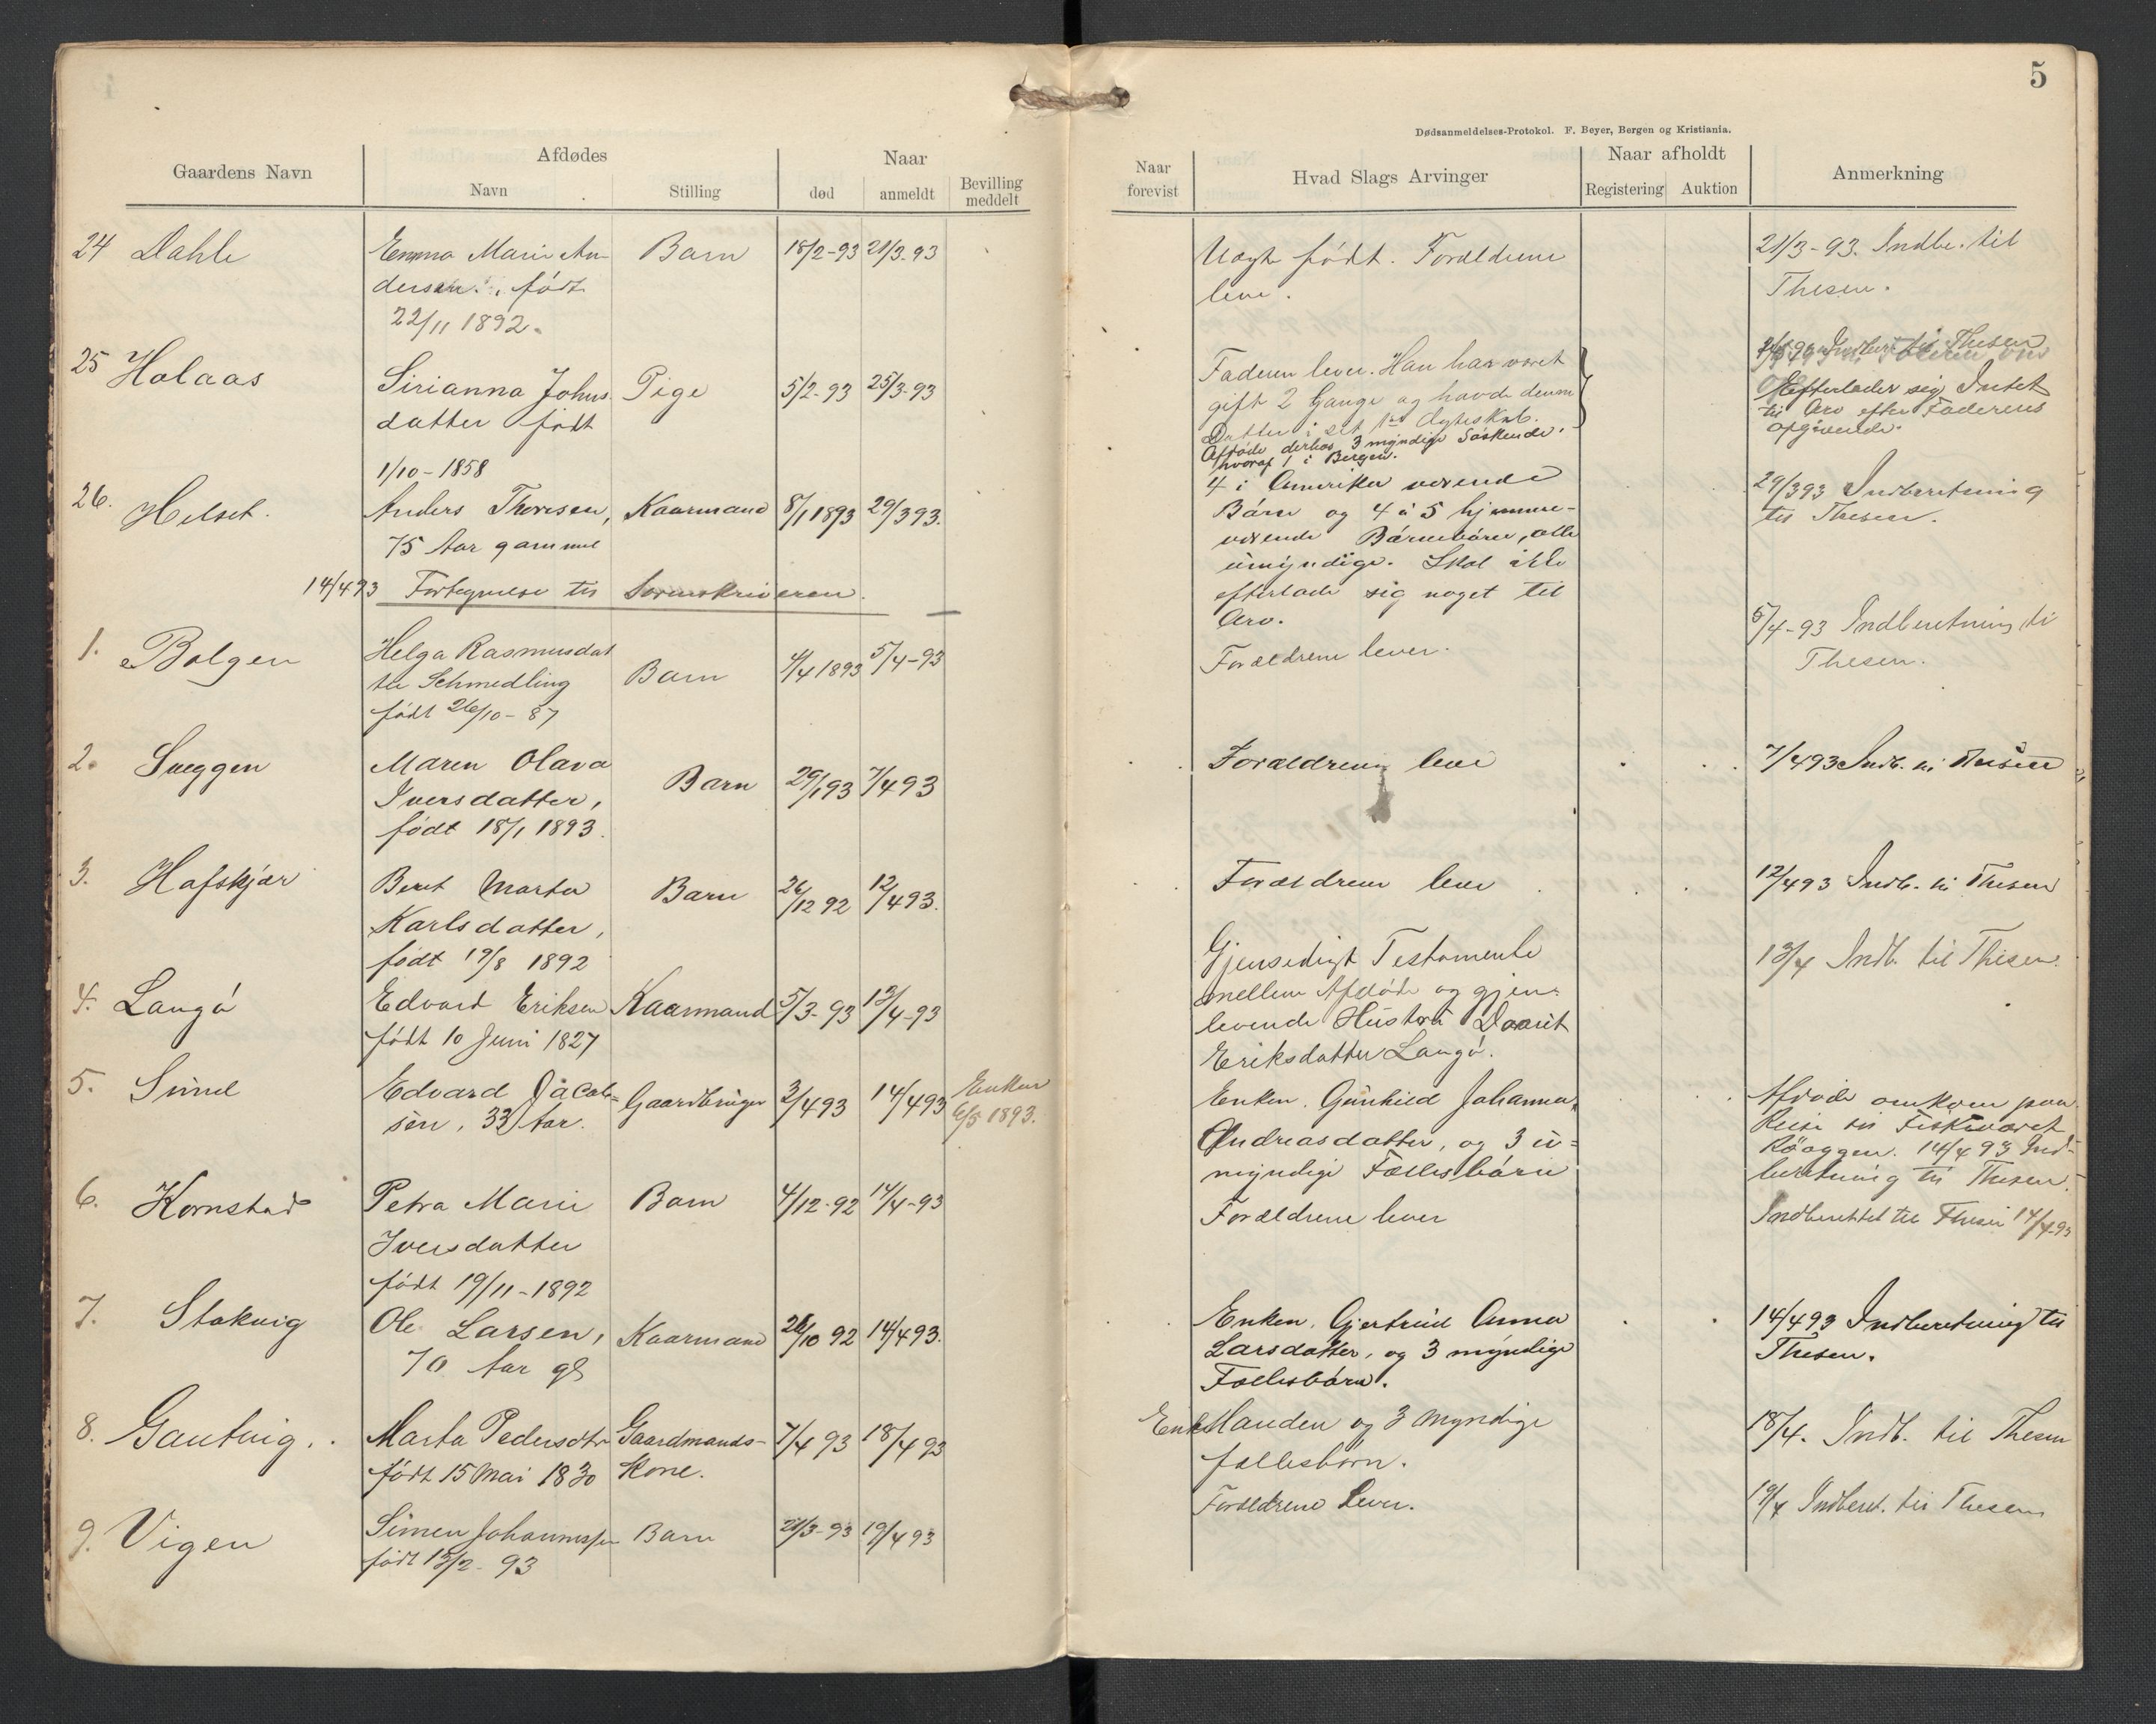 5
Dødsanmeldelses-Protokol. F. Beyer, Bergen og Kristiania.
Gaardens Navn
Afdødes
Navn
Stilling
Naar
død
anmeldt
Bevilling meddelt
Naar forevist
Hvad Slags Arvinger
Naar afholdt
Registering
Auktion
Anmerkning
24 Dahle
Emma Marie An-
dersen, født
22/11 1892.
Barn
18/2-93
21/3-93
Uægte født. Forældrene
leve.
21/3-93. Indbe. til
Thesen.
25 Holaas
Sirianna Johns-
datter født
1/10-1858
Pige
5/2-93
25/3-93
Faderen lever. Han har været
gift 2 Gange og havde denne
Datter i det 1ste Ægteskab.
Afdøde derhos 3 myndige Søskende,
hvoraf 1 i Bergen.
Thesen
Efterlader sig Intet
til Arv efter Faderens
opgivende.
26. Helset.
Anders Thoresen,
75 Aar gammel
Kaarmand
8/1 1893
29/3 93.
4 i Amerika værende
Børn og 4 à 5 hjemme-
værende Børnebørn, alle
umyndige. Skal ikke
efterlade sig noget til
Arv.
29/3 93 Indberetning
til Thesen.
14/4 93 Fortegnelse til Sorenskriveren.
1. Bolgen
Helga Rasmusdat
ter Schmedling
født 26/10-87
Barn
4/4 1893
5/4-93
Forældrene lever.
5/4-93 Indberetning ti
Thesen.
2. Sveggen
Maren Olava
Iversdatter,
født 18/1 1893.
Barn
29/1 93
7/4 93
Forældrene leve
7/4 93 Indb. til Thesen
3. Hafskjær
Beret Marta
Karlsdatter,
født 19/8 1892
Barn
26/12 92
12/4 93.
Forældrene leve
12/4 93 Indb. til Thesen
4. Langø
Edvard Eriksen
født 10 Juni 1827
Kaarmand
5/3-93
13/4-93
Gjensidigt Testamente
mellem Afdøde og gjen-
levende Hustru Daarit
Eriksdatter Langø.
13/4 Indb. til Thesen.
5. Sund
Edvard Jacob=
sen, 33 Aar.
Gaardbruger
2/4 93
14/4 93
Enken
6/5 1893.
Enken, Gunhild Johanna
Andreasdatter, og 3 u=
myndige Fællesbørn
Afdøde omkom paa
Reise til Fiskeværet
14/4 93 Ind-
beretning til Thesen.
6. Kornstad
Petra Marie
Iversdatter
født 19/11-1892
Barn
4/12-92
14/4-93
Forældrene lever
Indberettet til Thesen 14/4-93
7. Stokvig
Ole Larsen,
70 Aar gl
Kaarmand
26/10 92
14/4 93.
Enken, Gjertrud Anna
Larsdatter, og 3 myndige
Fællesbørn.
14/4 93 Indberetning til
Thesen.
8. Gautvig.
Marta Pedersdtr
født 15 Mai 1830
Gaardmands-
Kone.
7/4 93
18/4 93
EnkeManden og 3 myndige
fællesbørn.
18/4. Indb. til Thesen
9. Vigen
Simen Johannessen
født 13/2-93
Barn
21/3-93
19/4 93
Forældrene lever.
19/4 Indberet. til Thesen